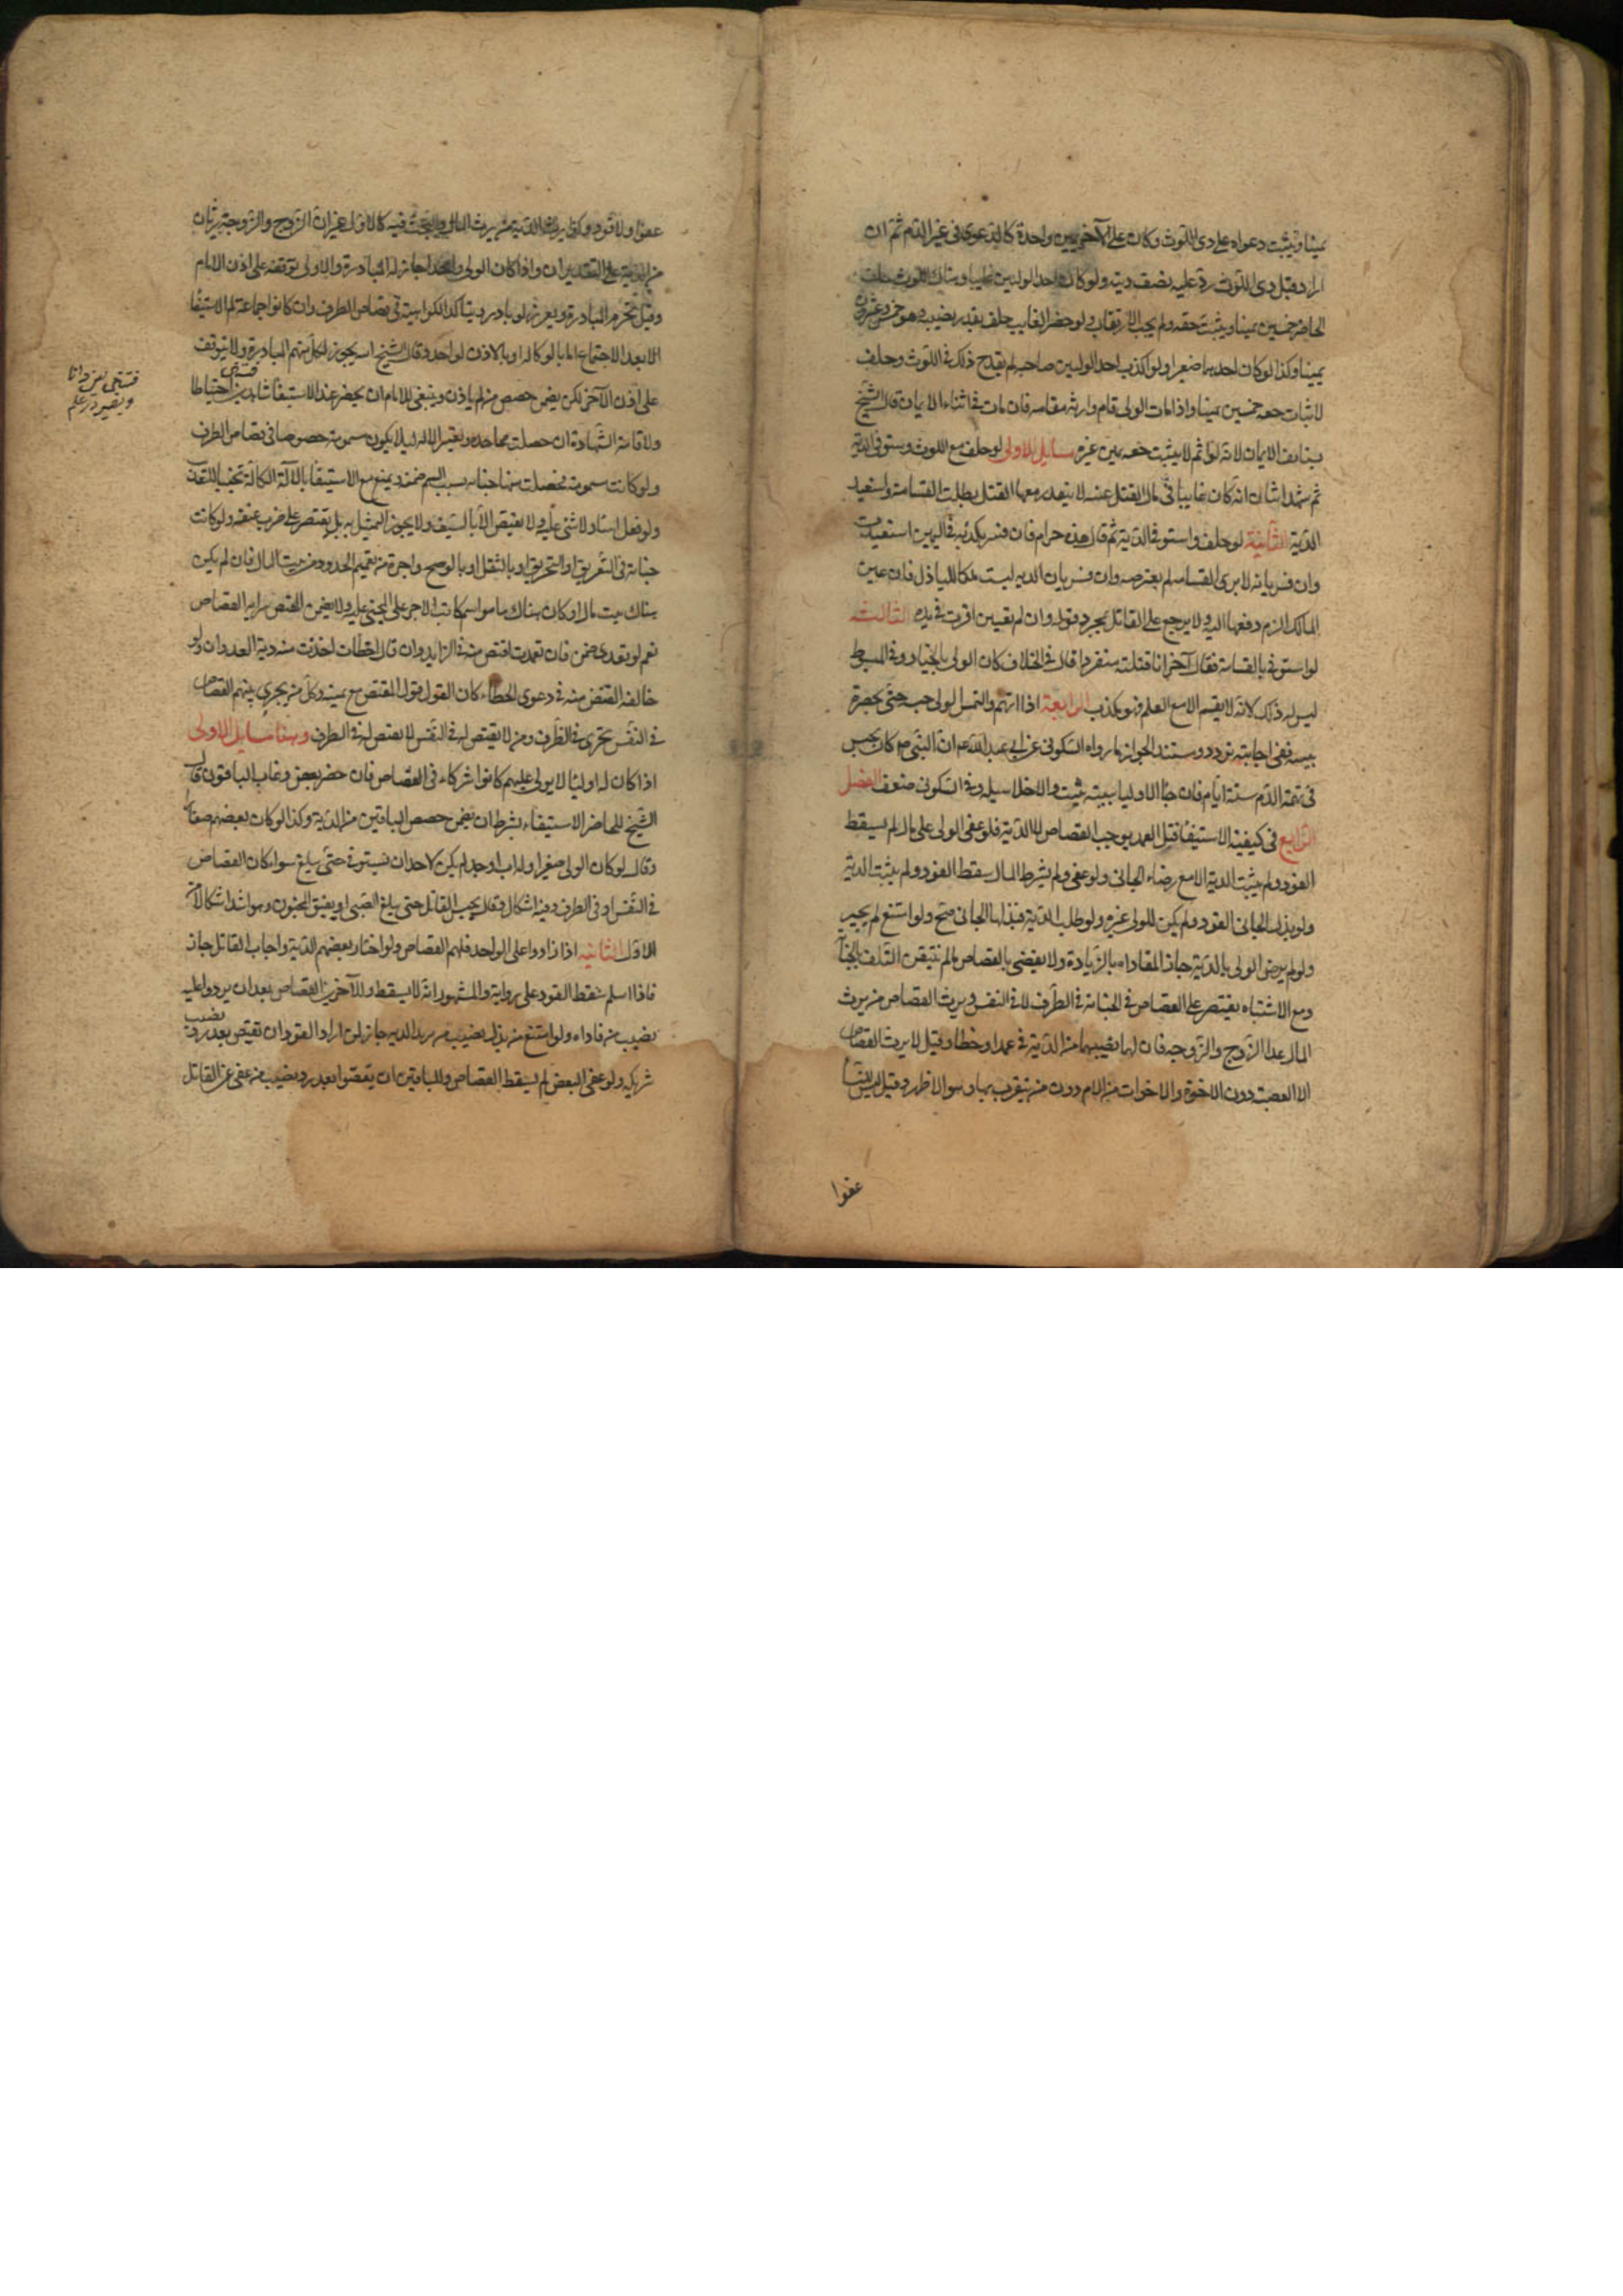 يمينا ويثبت دعواه على ذى اللوث وكان على الآخر يمين واحدة كالدعوى فى غير الدم ثم ان
اراد قتل ذى اللوث رد عليه نصف ديته ولو كان احد الوليين غايبا وهناك لوث حلف
الحاضر خمسين يمينا ويثبت حقه ولم يجب الارتقاب ولو حضر الغايب حلف بقدر نصيبه وهو خمس وعشرون
يمينا وكذا لو كان احدهما صغيرا ولو اكذب احد الوليين صاحبه لم يقدح ذلك فى اللوث وحلف
لاثبات حقه خمسين يمينا واذا مات الولى قام وارثه مقامه فان مات فى اثناء الايمان قال الشيخ
يستانف الايمان لانه لو اتم لاثبت حقه بيمين غيره مسايل الاولى لو حلف مع اللوث واستوفى الدية
ثم شهد اثنان انه كان غايبا فى حال القتل غيبه لا يتقدر معها القتل بطلت القسامة واستعيد
الدية الثانية لو حلف واستوفى الدية ثم قال هذه حرام فان فسر بكذبه فى اليمين استعيدت
وان فسر بانه لا يرى القسامه لم يعترضه وان فسر بان الديه ليست ملكا للباذل فان عين
المالك الزم دفعها اليه ولا يرجع على القاتل بمجرد قوله وان لم يعيين اقرت فى يده الثالثه
لو استوفى بالقسامة فقال آخر انا قتلته منفردا قال فى الخلاف كان الولى بالخيار وفى المبسوط
ليس له ذلك لانه لا يقسم الا مع العلم فهو يكذب الرابعة اذا اتهم والتمس الولى حبسه حتى يحضر
بينه ففى اجابته تردد ومستند الجواز ما رواه السكونى عن ابى عبد الله عم ان النبى ص كان يحبس
فى تهمة الدم ستة ايام فان جاء الاوليا ببينة ثبت والا خلا سبيله وفى السكونى ضعف الفصل
الرابع فى كيفية الاستيفاء قتل العمد يوجب القصاص لا الدية فلو عفى الولى على مال لم يسقط
القود ولم يثبت الدية الا مع رضاء الجانى ولو عفى ولم يشرط المال سقط القود ولم يثبت الدية
ولو بذل الجانى القود لم يكن للولى غيره ولو طلب الدية فبذلها الجانى صح ولو امتنع لم يجبر
ولو لم يرض الولى بالدية جاز المفاداه بالزيادة ولا يقضى بالقصاص ما لم يتيقن التلف بالجناية
ومع الاشتباه يقتصر على القصاص فى الجناية فى الطرف لا فى النفس ويرث القصاص من يرث
المال عدا الزوج والزوجه فان لهما نصيبهما من الدية فى عمد او خطا وقيل لا يرث القصاص
الا العصبة دون الاخوة والاخوات من الام ودون من يتقرب بها وهو الاظهر وقيل ليس للنساء
عفوا
عفوا ولا قود وكذا يرث الدية من يرث المال والبحث فيه كالاول غير ان الزوج والزوجة يرثان
من الدية على التقديرين واذا كان الولى واحدا جاز له المبادرة والاولى توقفه على اذن الامام
وقيل تحرم المبادرة ويعزر لو بادر ويتاكد الكراهية فى قصاص الطرف وان كانوا جماعة لم الاستيفاء
الا بعد الاجتماع اما بالوكالة او بالاذن لواحد وقال الشيخ ره يجوز لكل منهم المبادرة ولا يتوقف
على اذن الآخر لكن يضمن حصص من لم ياذن وينبغى للامام ان يحضر عند الاستيفاء شاهدين احتياطا
ولاقامة الشهادة ان حصلت مجاحده ويعتبر الاله ليلا يكون مسمومة خصوصا فى قصاص الطرف
ولو كانت مسمومة فحصلت منها جنايه بسبب السم ضمنه ويمنع من الاستيفاء بالآلة الكالة تجنبا للتعذيب
ولو فعل اساء ولا شئى عليه ولا يقتص الا بالسيف ولا يجوز التمثيل به بل يقتصر على ضرب عنقه ولو كانت
جنايته فى التغريق او التحريق او بالمثقل او بالرضح واجرة من يقيم الحدود من بيت المال فان لم يكن
هناك بيت مال او كان هناك ما هو اهم كانت الاجرة على المجنى عليه ولا يضمن المقتص سرايه القصاص
نعم لو تعدى ضمن فان تعمدت اقتص منه فى الزايد وان قال اخطات اخذت منه دية العدوان ولو
خالفه المقتص منه فى دعوى الخطاء كان القول قول المقتص مع يمينه وكل من يجرى بينهم القصاص
فى النفس يجرى فى الطرف ومن لا يقتص له فى النفس لا يقتص له فى الطرف وهنا مسايل الاولى
اذا كان له اوليا لا يولى عليهم كانوا شركاء فى القصاص فان حضر بعض وغاب الباقون قال
الشيخ للحاضر الاستيفاء بشرط ان يضمن حصص الباقين من الدية وكذا لو كان بعضهم صغارا
وقال لو كان الولى صغيرا وله اب او جد لم يكن لاحد ان يستوفى حتى يبلغ سواء كان القصاص
فى النفس او فى الطرف وفيه اشكال وقال يحبس القاتل حتى يبلغ الصبى او يفيق المجنون وهو اشد اشكالا من
الاول الثانيه اذا زادوا على الواحد فلهم القصاص ولو اختار بعضهم الدية واجاب القاتل جاز
فاذا سلم سقط القود على رواية والمشهور انه لا يسقط وللآخرين القصاص بعد ان يردوا عليه
نصيب من فاداه ولو امتنع من بذل نصيب من يريد الديه جاز لمن اراد القود ان يقتص بعد رد نصيب
شريكه ولو عفى البعض لم يسقط القصاص وللباقين ان يقتصوا بعد رد نصيب من عفى عن القاتل